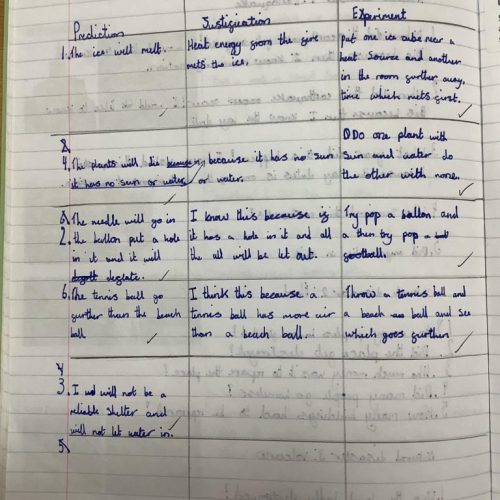 Prediction Justification Experiment
1. The ice will melt. Heat energy from the fire put one ice cube near a
mets the ice. heat source and another
in the room further away,
time which mets first.
2.
4. The plants will die because because it has no sun Do one plant with
it has no sun or water or water. sun and water do
the other with none.
The needle will go in I know this because if Try pop a ballon and
2. the ballon put a hole it has a hole in it and all a then try pop a
in it and it will the all will be let out. football.
deflate.
6. The tennis ball go I think this because a Throw a tennis ball and
further than the beach tennis ball has more air a beach ball and see
ball than a beach ball. which goes further
4
3. I will not be a
reliable shelter and
will not let water in.
5